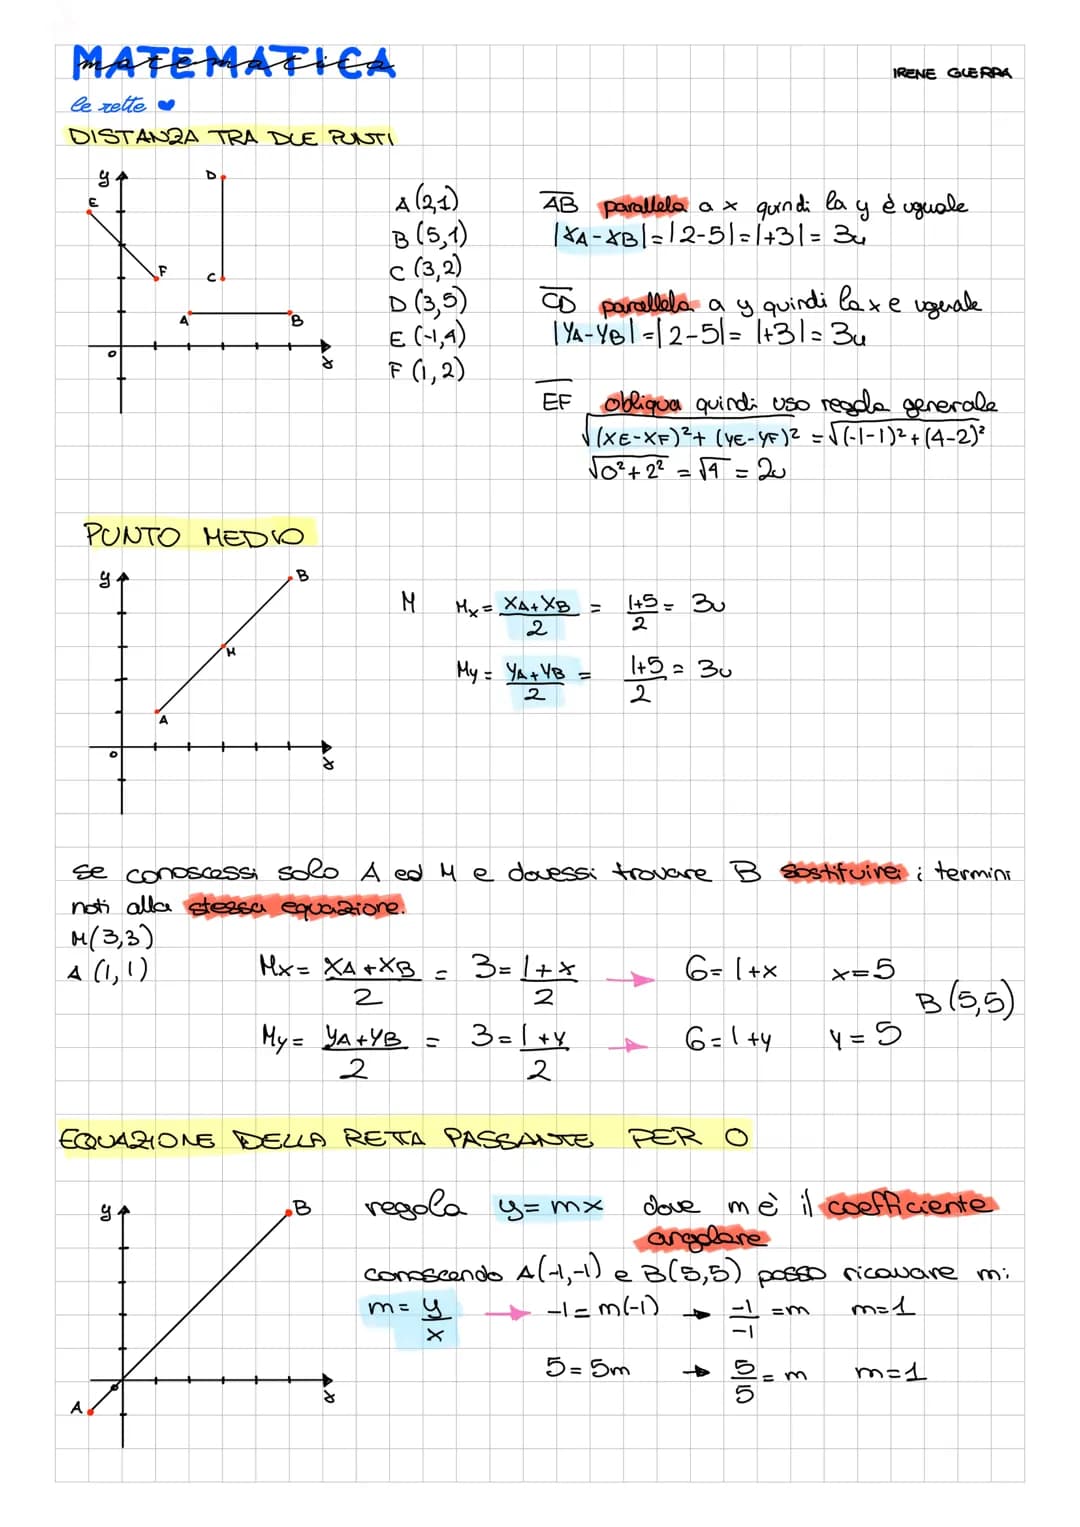 MATEMATICA
matematica
IRENE GUERRA
le rette
DISTANZA TRA DUE PUNTI
y
E
D
F
C
A
B
o
x
A (2,1)
B (5,1)
C (3,2)
D (3,5)
E (-1,4)
F (1,2)
AB parallela a x quindi la y è uguale
|XA-XB|=|2-5|=|+3|= 3u
CD parallela a y quindi la x e uguale
|YA-YB|=|2-5|= |+3|= 3u
EF obliqua quindi uso regola generale
√(XE-XF)²+ (YE-YF)² = √(-1-1)²+(4-2)²
√0²+2² = √4 = 2u
PUNTO MEDIO
y
B
M
A
o
x
M Mx = XA+XB/2 = 1+5/2 = 3u
My = YA+YB/2 = 1+5/2 = 3u
se conoscessi solo A ed M e dovessi trovare B sostituirei i termini
noti alla stessa equazione.
M(3,3)
A (1,1)
Mx = XA+XB/2 = 3=1+x/2 → 6=1+x x=5
B(5,5)
My = YA+YB/2 = 3=1+y/2 → 6=1+y y=5
EQUAZIONE DELLA RETTA PASSANTE PER O
y
B
A
o
x
regola y=mx dove m è il coefficiente
angolare
conoscendo A(-1,-1) e B(5,5) posso ricavare m:
m= y/x → -1=m(-1) → -1/-1 =m m=1
5=5m → 5/5 = m m=1